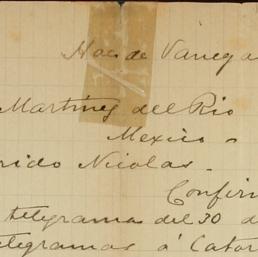 Hac. de Vanega
Martinez del Rio
Mexico
rido Nicolas.
Confir
telegrama del 30 d
elegramas á Cator